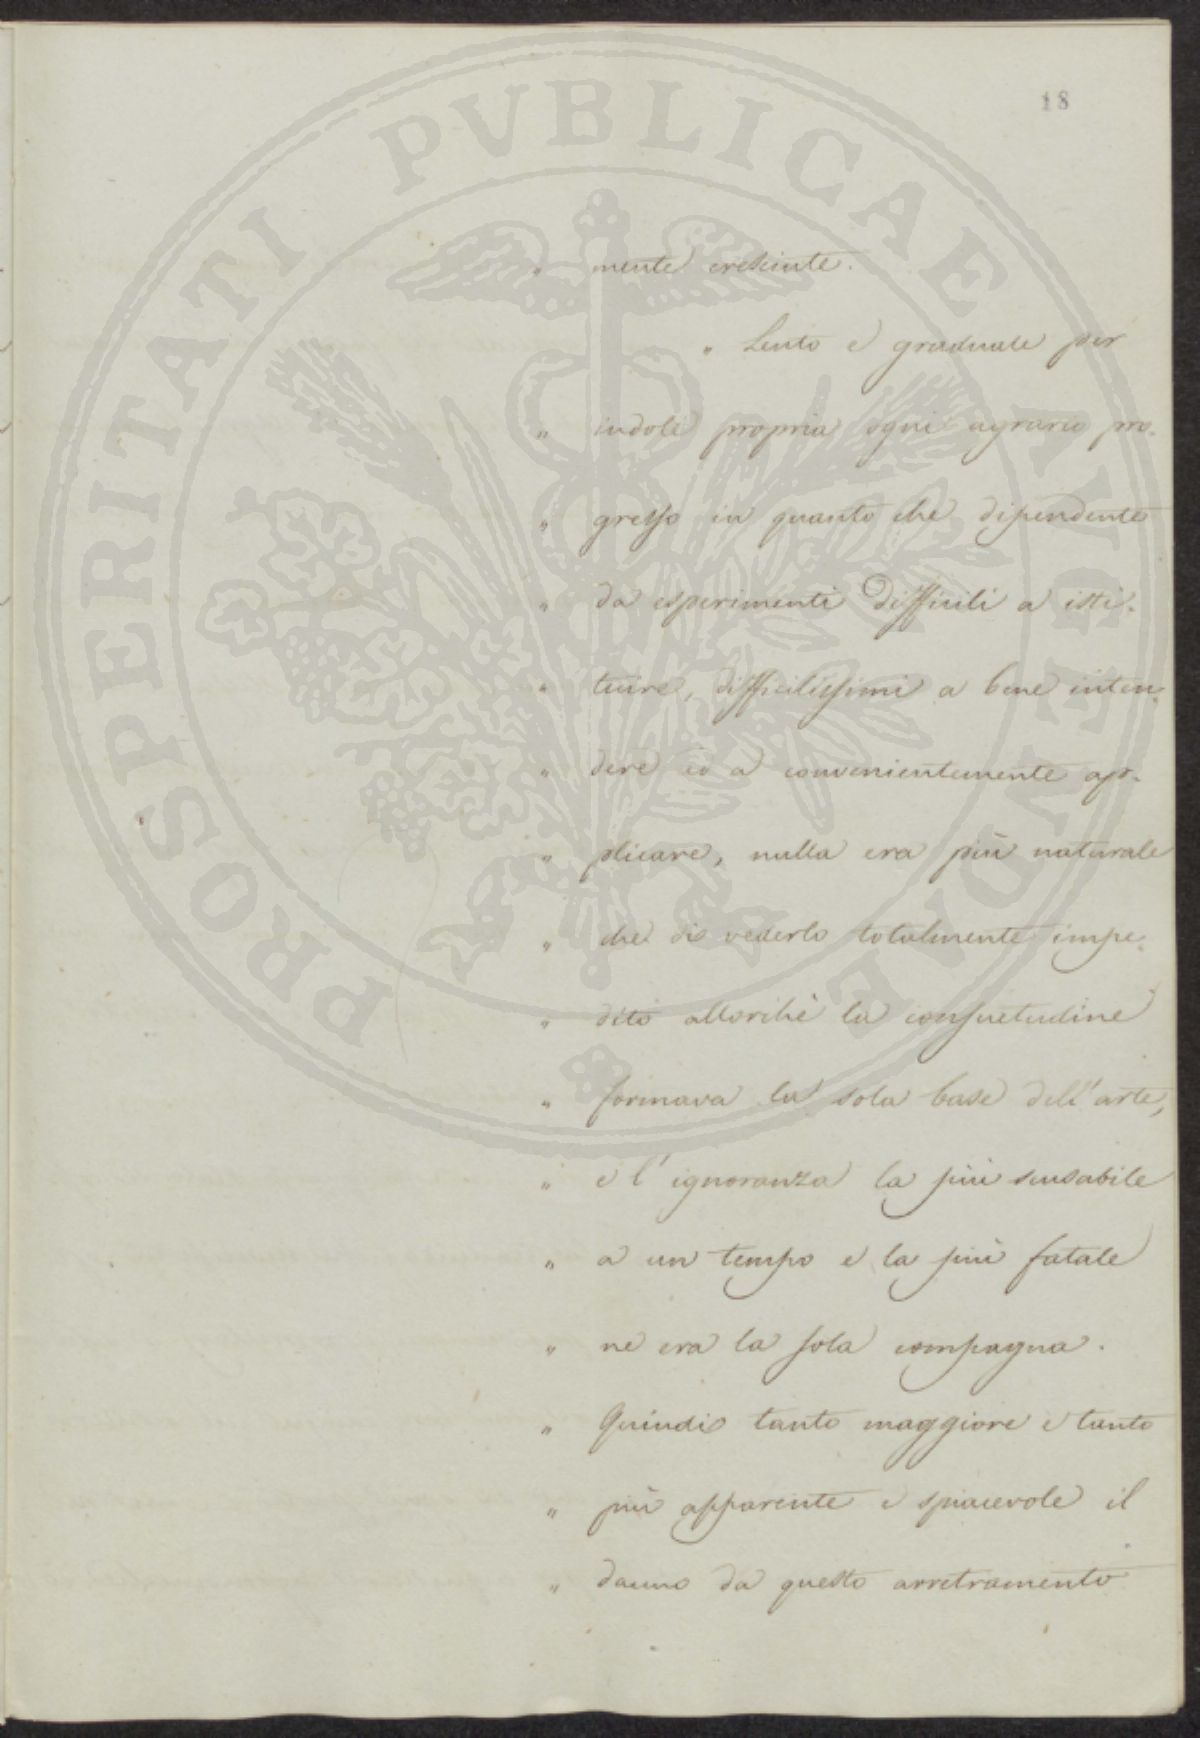 18
PROSPERITATI PVBLICAE AVGENDAE
" mente cresciute.
" Lento e graduale per
" indole propria ogni agrario pro-
" gresso in quanto che dipendente
" da esperimenti difficili a isti-
" tuire, difficilissimi a bene inten-
" dere ed a convenientemente ap-
" plicare, nulla era più naturale
" che di vederlo totalmente impe-
" dito allorchè la consuetudine
" formava la sola base dell'arte,
" e l'ignoranza la più scusabile
" a un tempo e la più fatale
" ne era la sola compagna.
" Quindi tanto maggiore e tanto
" più apparente e spiacevole il
" danno da questo arretramento